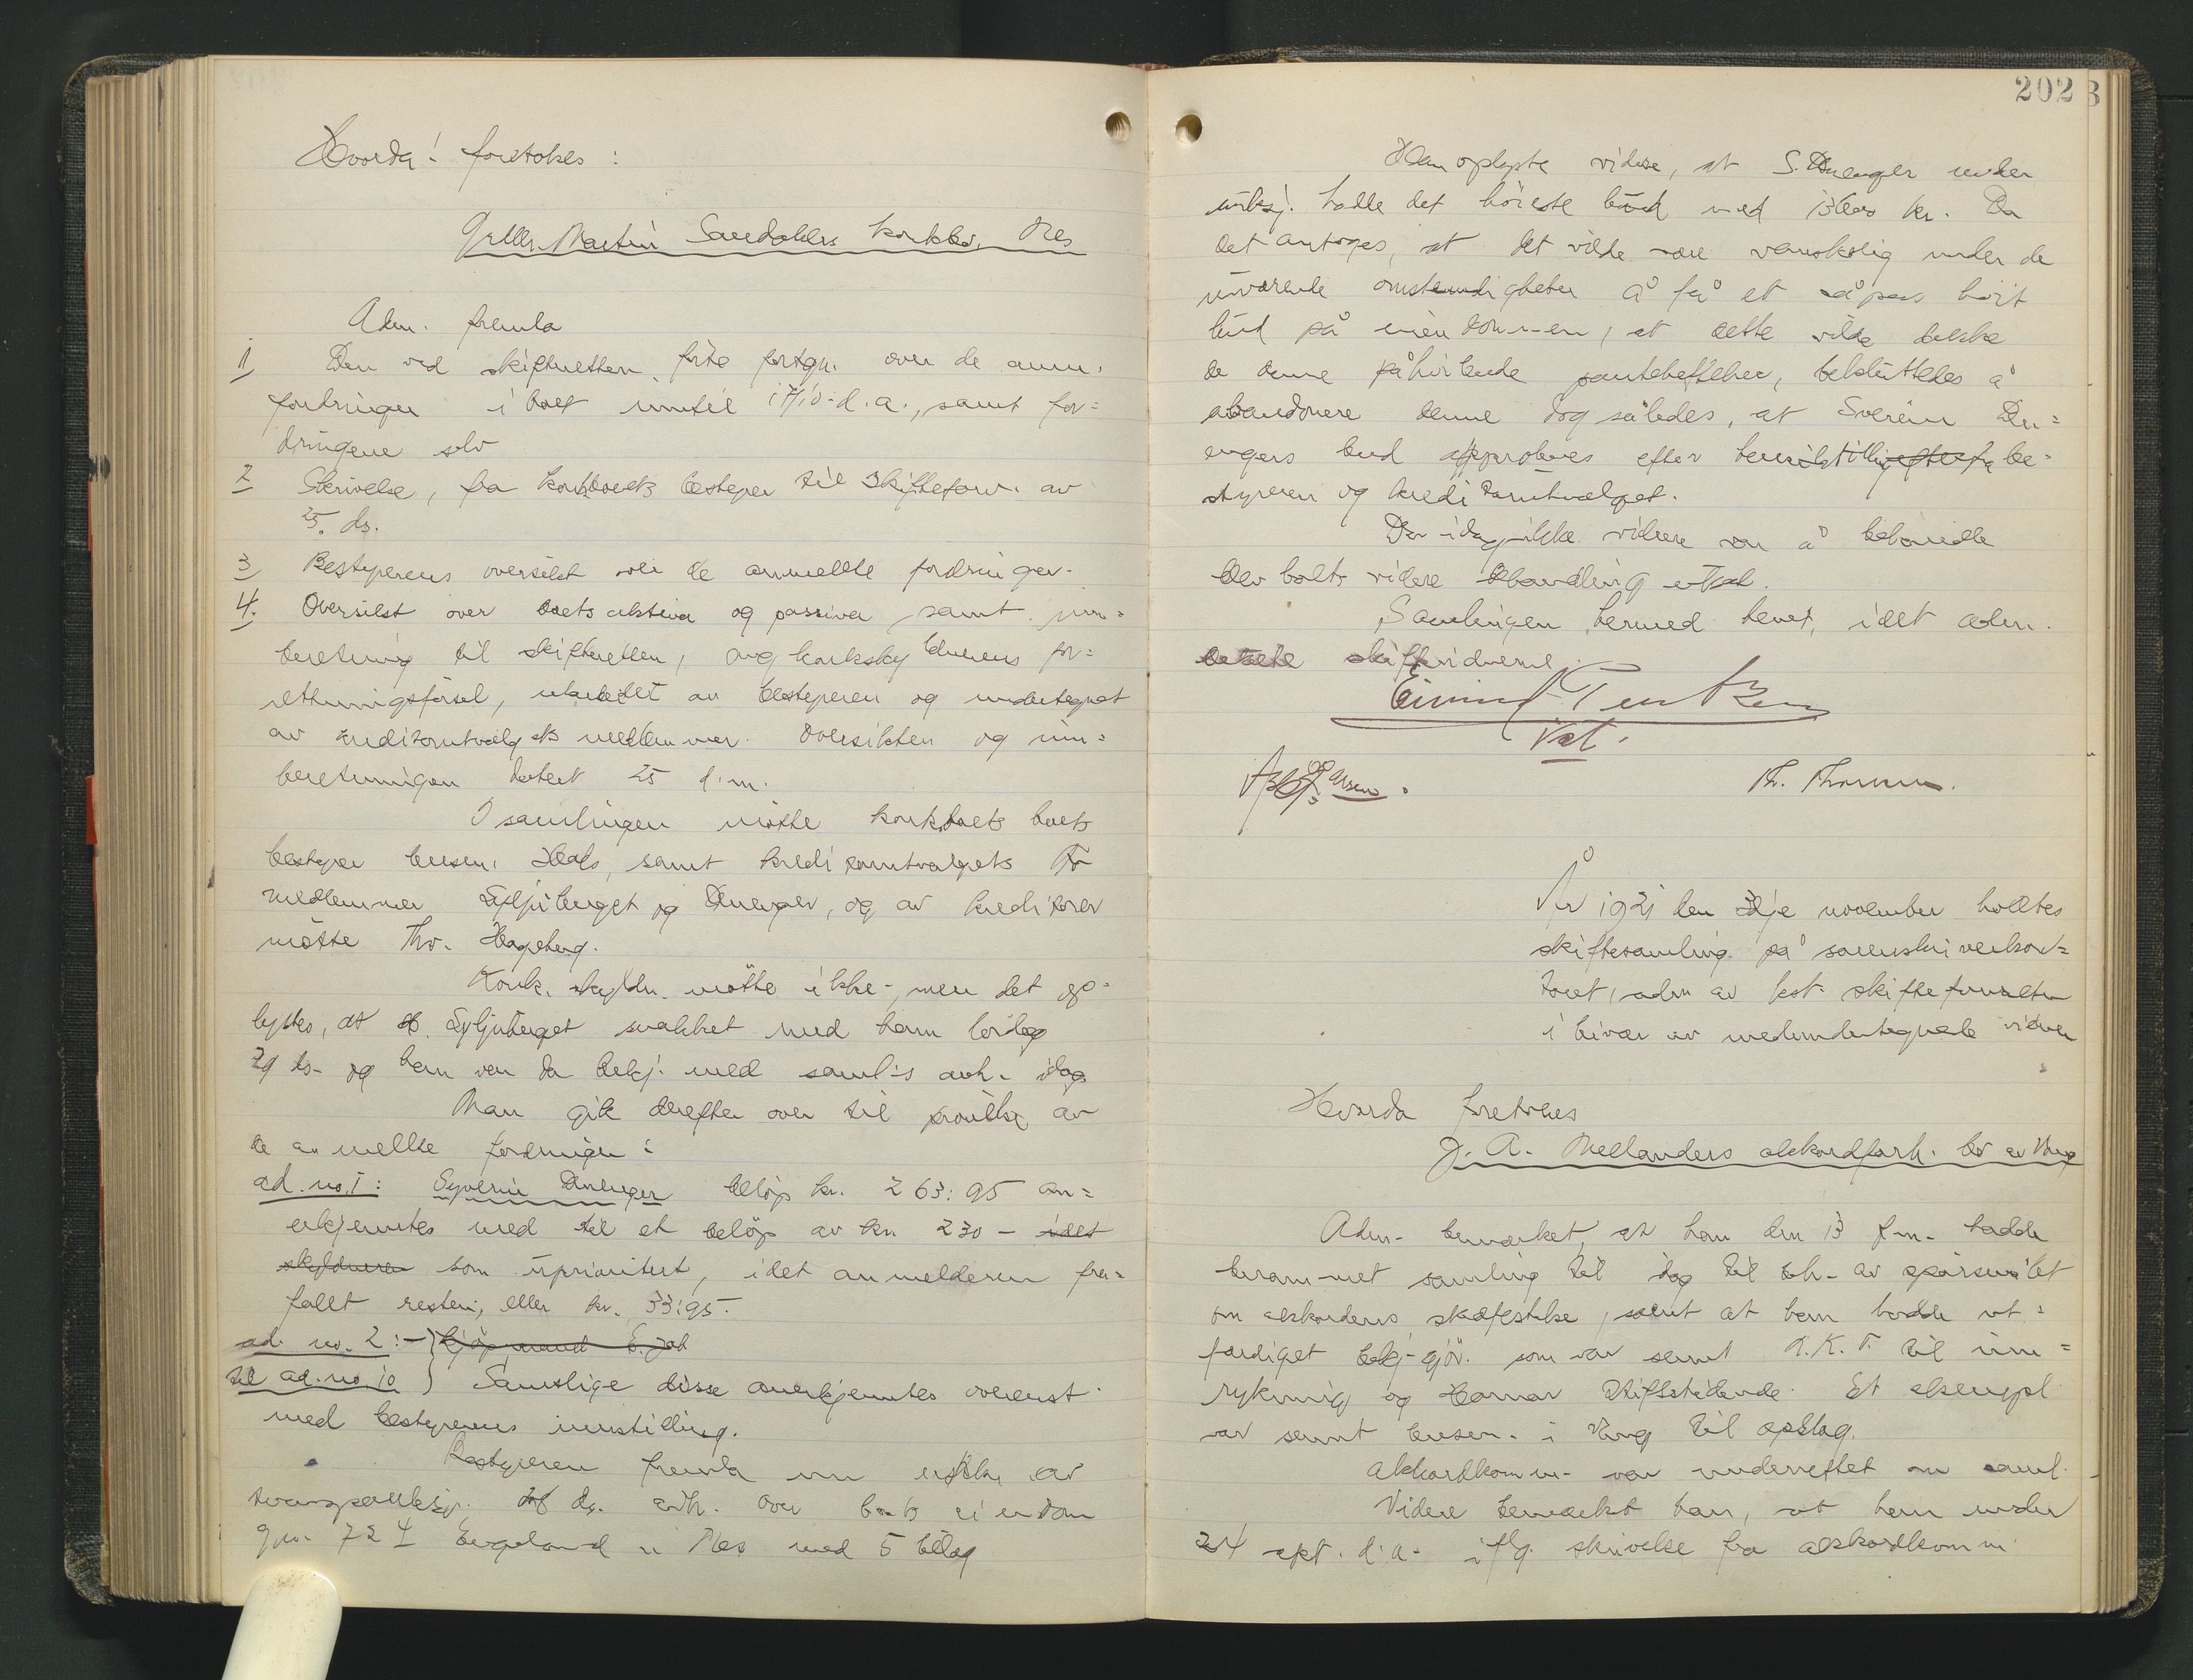 Hvorda! foretokes:
Gullsm. Martin Sandahls konkbo, Nes
Adm. fremla
1, Den ved skifteretten førte fortgn. over de anm.
fordringer i boet inntil 17/10 d.a., samt for=
dringene selv
2 Skrivelse, fra konkboets bestyrer til skifteforv. av
25. ds.
3, Bestyrerens oversikt over de anmeldte fordringer.
4. Oversikt over boets aktiva og passiva, samt inn=
beretning til skifteretten, ang konkskyldnerens for=
retningsførsel, utarbeidet av bestyreren og undertegnet
av kreditorutvalgets medlemmer. Oversikten og inn=
beretningen datert 25 d.m.
I samlingen møtte konkboets boets
bestyrer lensm. Hals, samt kreditorutvalgets to
medlemmer Syljuberget og Duenger, og av kreditorer
møtte Thv. Hageberg.
Konk. skyldn. møtte ikke, men det op=
lystes, at Syljuberget snakket med ham lørdag
29 ds. og han var da bekj. med saml's avh. idag
Man gik derefter over til prøvelse av
de anmeldte fordringer:
ad. no. 1: Syverin Duenger beløp kr. 263:95 an=
erkjentes med til et beløp av kr. 230 - idet
skyldneren som uprioritert, idet anmelderen fra=
fallt resten, eller kr. 33:95.
ad no. 2:- ) kjøpmand E. Jab
til ad. no. 10 ) Samtlige disse anerkjentes overenst.
med bestyrerens innstilling.
Bestyreren fremla nu utskr. av
tvangsauksj. ds. avh. over boets eiendom
gno. 72 Engeland i Nes med 5 bilag
202
Han oplyste videre, at S. Duenger under
auksj. hadde det høieste bud med 13600 kr. Da
det antoges, at det vilde være vanskelig under de
nuværende omstendigheter å få et såpass høit
bud på eiendommen, at dette vilde dekke
de denne påhvilende panteheftelser, besluttedes å
abandonere denne dog således, at Sverin Du=
engers bud approberes efter innstilling efter fra be=
styreren og kreditorutvalget.
Der idag ikke videre var å behandle
blev boets videre behandling utsat.
Samlingen hermed hevet, idet adm.
betalte skiftevidnerne.
Th. Thoresen.
År 1931 den 3dje november holdtes
skiftesamling på sorenskriverkon=
toret, adm av kst. skifteforvalter
i bivær av medundertegnede vidner
Hvorda foretokes
J. A. Mellanders akkordforh. bo av Vang
Adm. bemerket, at han den 13 f.m. hadde
berammet samling til idag til beh. av spørsmålet
om akkordens stadfestelse, samt at han hadde ut=
ferdiget bekj.gjør. som var sennt N.K.T. til inn=
rykning og Hamar Stiftstidende. Et eksempl.
var sennt lensm. i Vang til opslag.
Akkordkomm. var underrettet om saml.
Videre bemerket han, at han under
24 sept. d.a. iflg. skrivelse fra akkordkomm